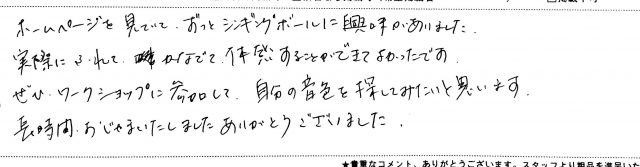 ホームページを見ていて、ずっとシンギングボールに興味がありました。
実際にふれて、かなでて、体感することができてよかったです。
ぜひ、ワークショップに参加して、自分の音色を探してみたいと思います。
長時間、おじゃまいたしました ありがとうございました。
★貴重なコメント、ありがとうございます。スタッフより粗品を進呈いた